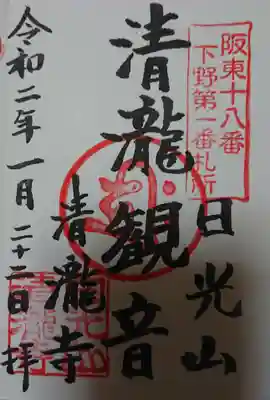 阪東十八番
下野第一番札所
日光山
清瀧観音
清瀧寺
令和二年一月二十二日拝